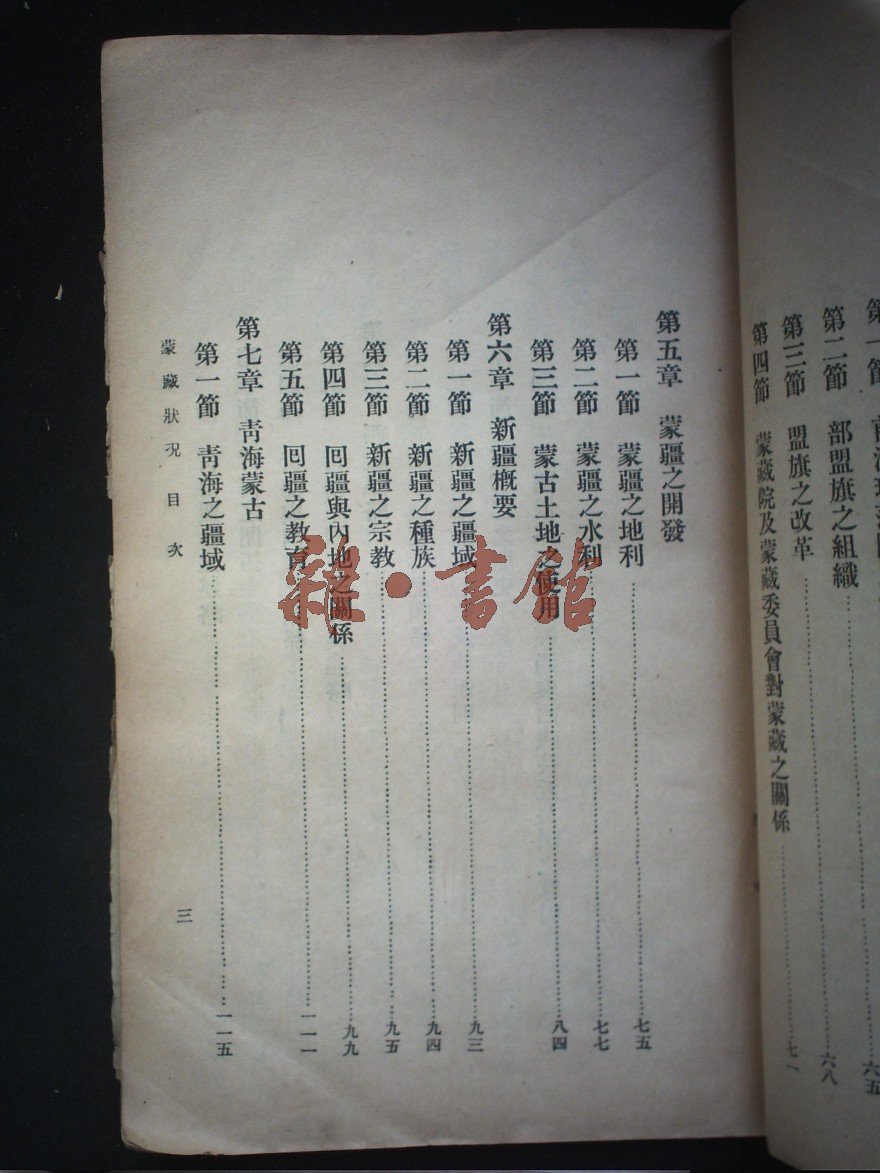 第二節　部盟旗之組織……六八
第三節　盟旗之改革……七一
第四節　蒙藏院及蒙藏委員會對蒙藏之關係
第五章　蒙疆之開發
第一節　蒙疆之地利……七五
第二節　蒙疆之水利……七七
第三節　蒙古土地之使用……八四
第六章　新疆概要
第一節　新疆之疆域……九三
第二節　新疆之種族……九四
第三節　新疆之宗教……九五
第四節　回疆與內地之關係……九九
第五節　回疆之教育……一一一
第七章　青海蒙古
第一節　青海之疆域……一一五
蒙藏狀況　目次
三
雜·書館